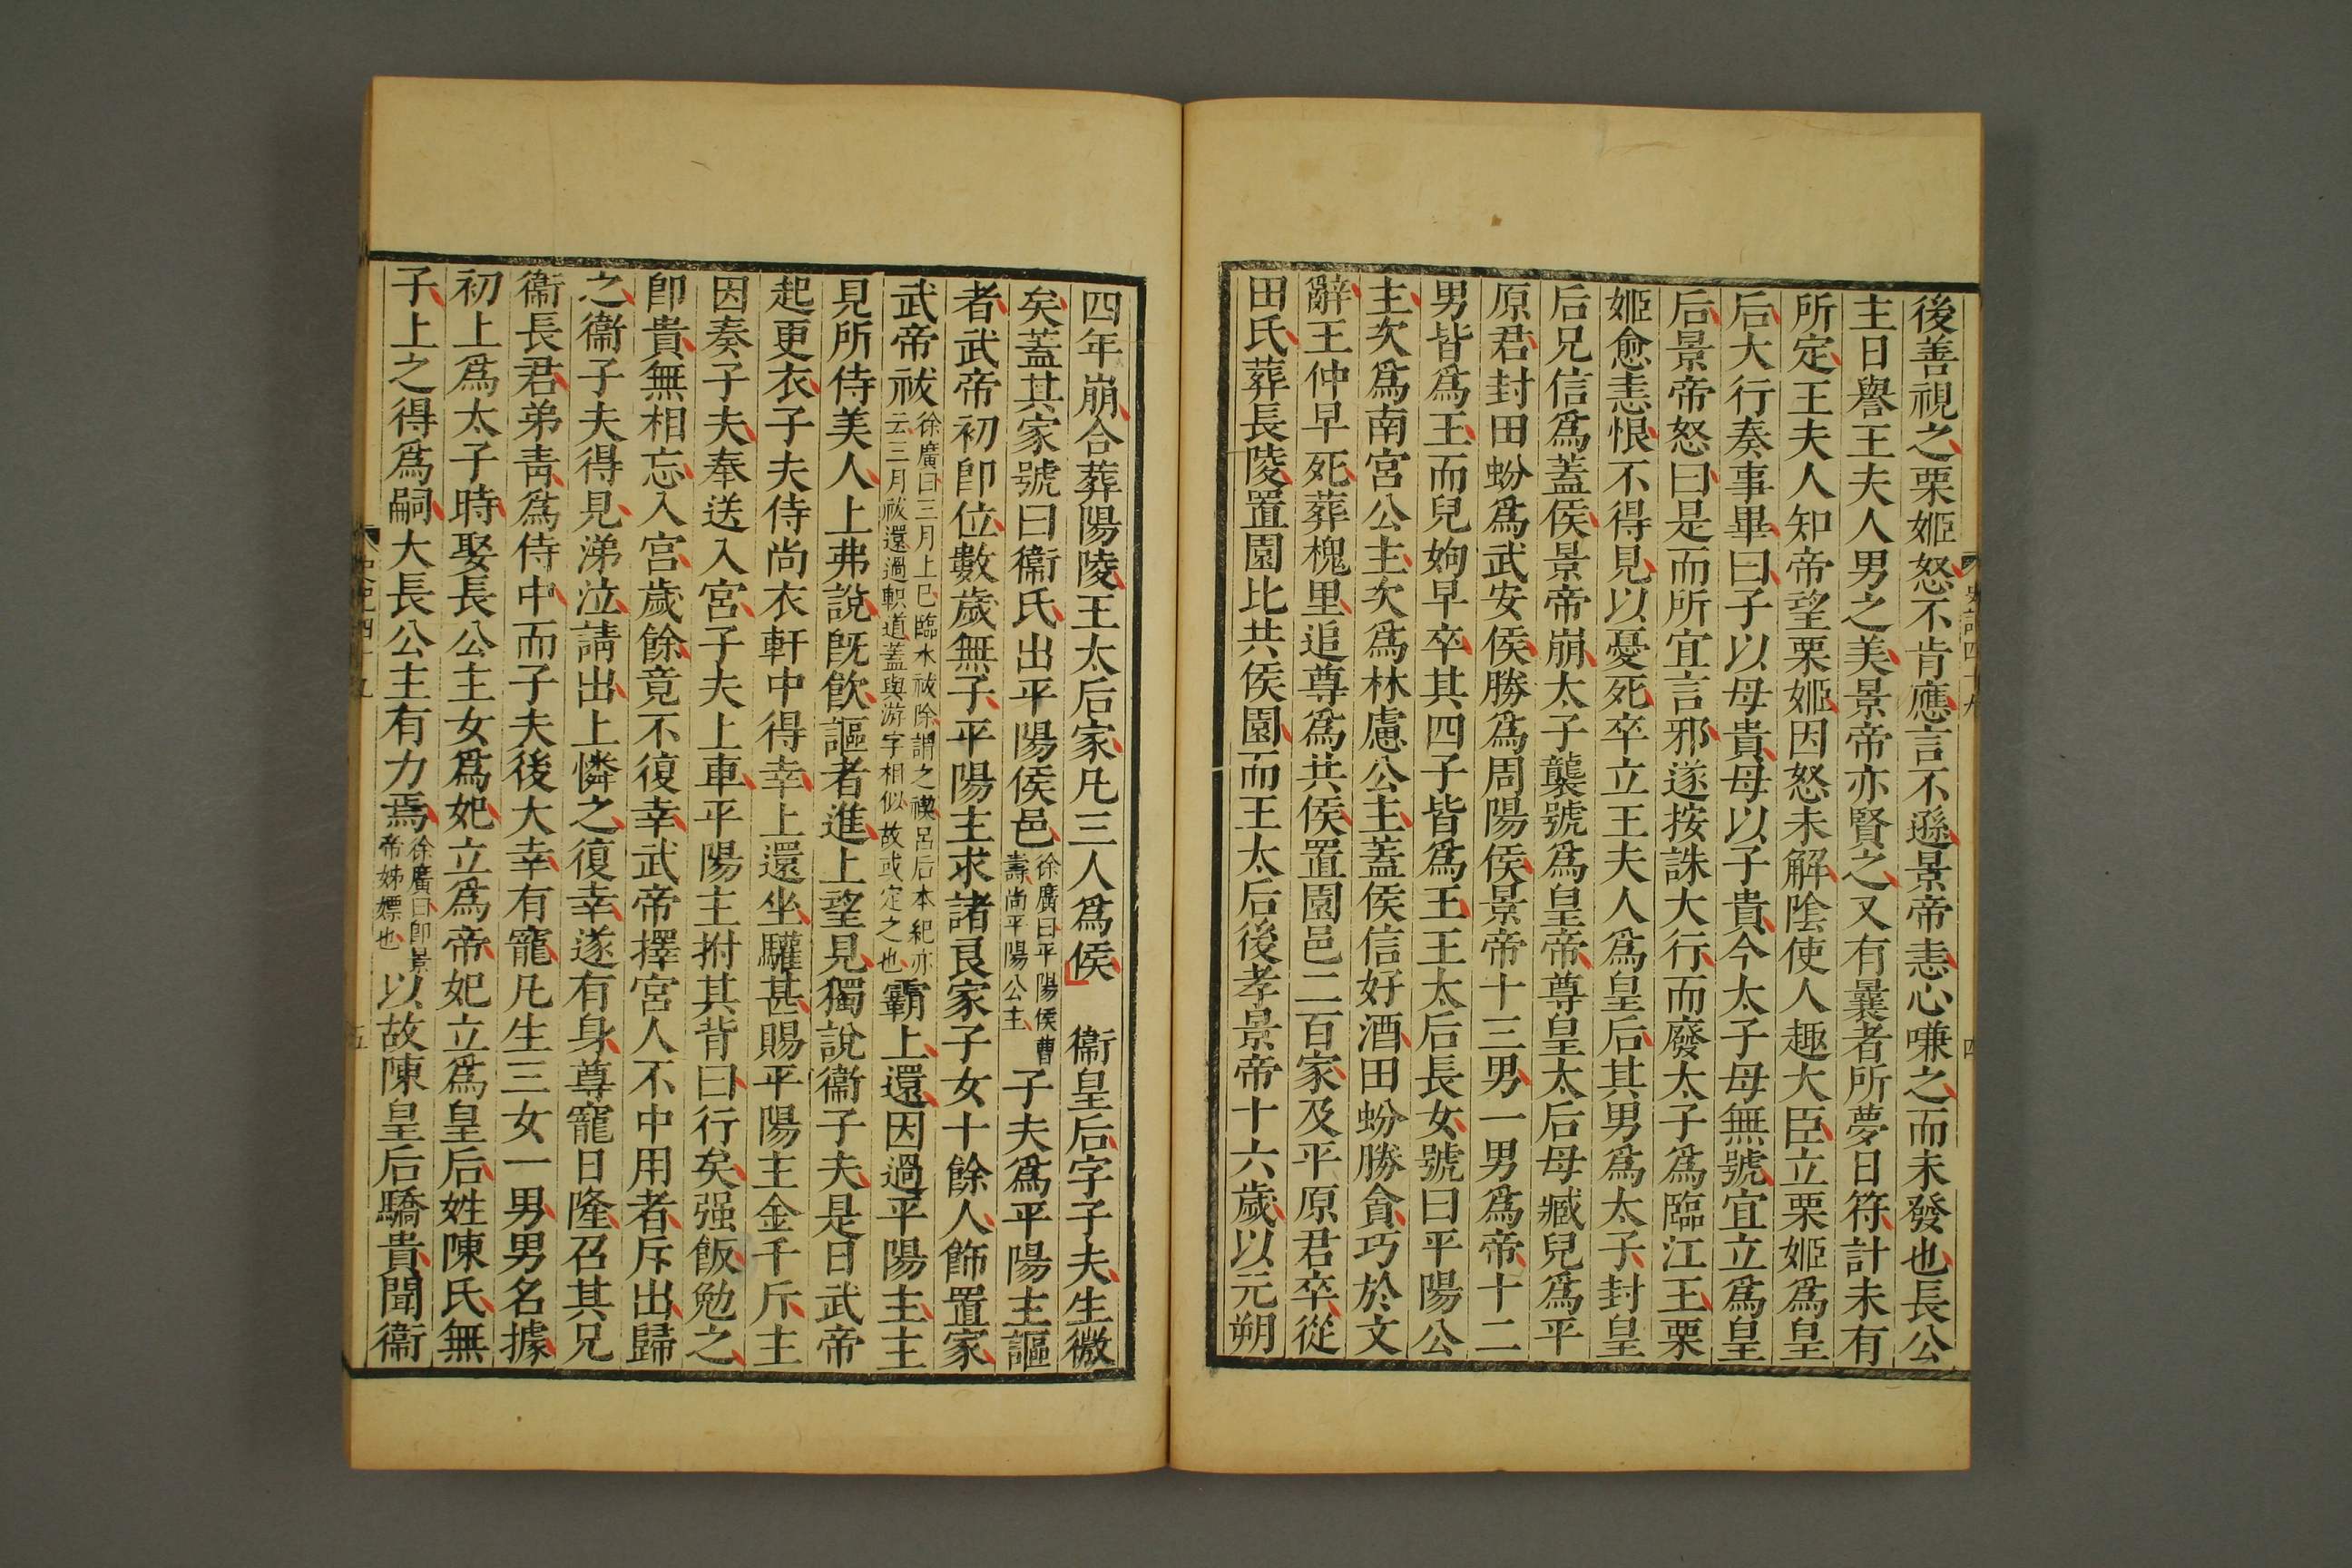 後善視之栗姬怒不肯應言不遜景帝恚心嗛之而未發也長公
主日譽王夫人男之美景帝亦賢之又有曩者所夢日符計未有
所定王夫人知帝望栗姬因怒未解陰使人趣大臣立栗姬爲皇
后大行奏事畢曰子以母貴母以子貴今太子母無號宜立爲皇
后景帝怒曰是而所宜言邪遂按誅大行而廢太子爲臨江王栗
姬愈恚恨不得見以憂死卒立王夫人爲皇后其男爲太子封皇
后兄信爲蓋侯景帝崩太子襲號爲皇帝尊皇太后母臧兒爲平
原君封田蚡爲武安侯勝爲周陽侯景帝十三男一男爲帝十二
男皆爲王而兒姁早卒其四子皆爲王王太后長女號曰平陽公
主次爲南宮公主次爲林慮公主蓋侯信好酒田蚡勝貪巧於文
辭王仲早死葬槐里追尊爲共侯置園邑二百家及平原君卒從
田氏葬長陵置園比共侯園而王太后後孝景帝十六歲以元朔
四年崩合葬陽陵王太后家凡三人爲侯　衞皇后字子夫生微
矣蓋其家號曰衞氏出平陽侯邑徐廣曰平陽侯曹壽尚平陽公主子夫爲平陽主謳
者武帝初卽位數歲無子平陽主求諸良家子女十餘人飾置家
武帝祓徐廣曰三月上巳臨水祓除謂之禊呂后本紀亦云三月祓還過軹道蓋與游字相似故或定之也霸上還因過平陽主主
見所侍美人上弗說旣飮謳者進上望見獨說衞子夫是日武帝
起更衣子夫侍尚衣軒中得幸上還坐驩甚賜平陽主金千斤主
因奏子夫奉送入宮子夫上車平陽主拊其背曰行矣强飯勉之
卽貴無相忘入宮歲餘竟不復幸武帝擇宮人不中用者斥出歸
之衞子夫得見涕泣請出上憐之復幸遂有身尊寵日隆召其兄
衞長君弟靑爲侍中而子夫後大幸有寵凡生三女一男男名據
初上爲太子時娶長公主女爲妃立爲帝妃立爲皇后姓陳氏無
子上之得爲嗣大長公主有力焉徐廣曰卽景帝姊嫖也以故陳皇后驕貴聞衞